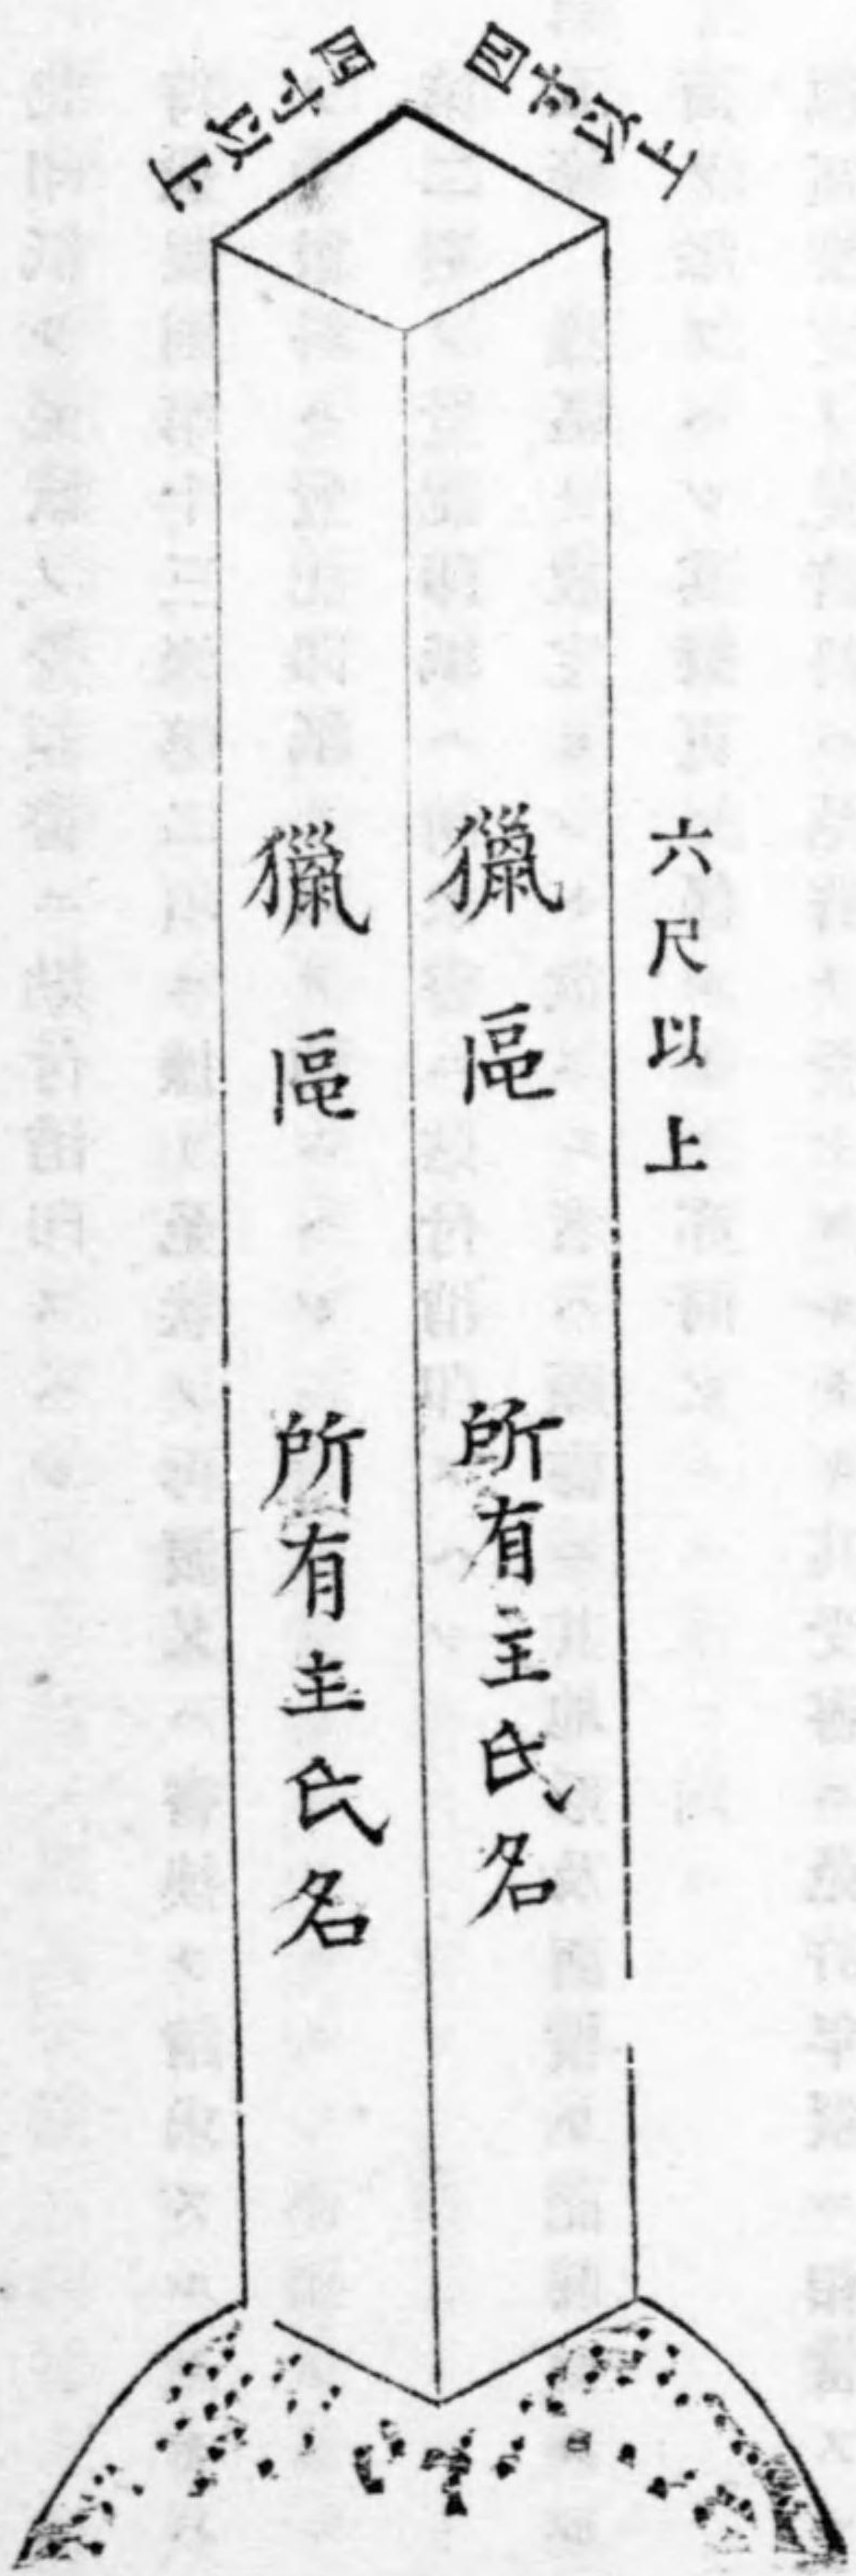 四寸以上
四寸以上
六尺以上
獵區
所有主氏名
獵區
所有主氏名